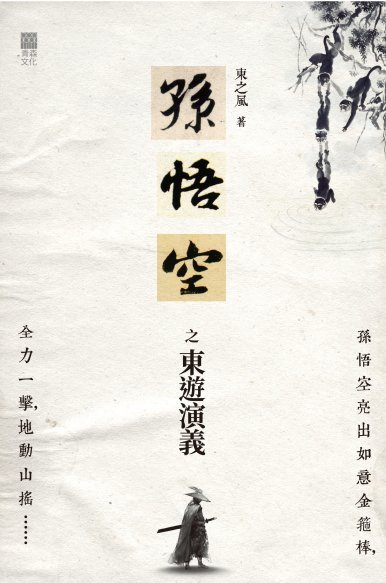 青森
文化
東之風 著
孫悟空
之
東遊演義
孫悟空亮出如意金箍棒，
全力一擊，地動山搖……